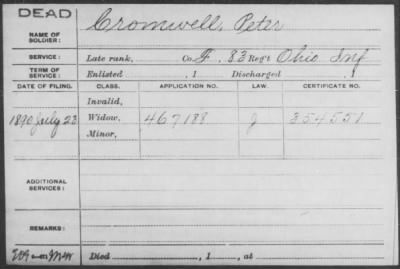 DEAD
NAME OF SOLDIER: Cromwell, Peter
SERVICE: Late rank, Co. F. 83 Reg't Ohio Inf
TERM OF SERVICE: Enlisted , 1 Discharged , 1
DATE OF FILING. CLASS. APPLICATION NO. LAW. CERTIFICATE NO.
Invalid,
1890 July 23 Widow, 467188 J 354551
Minor,
ADDITIONAL SERVICES:
REMARKS:
Died , 1 , at